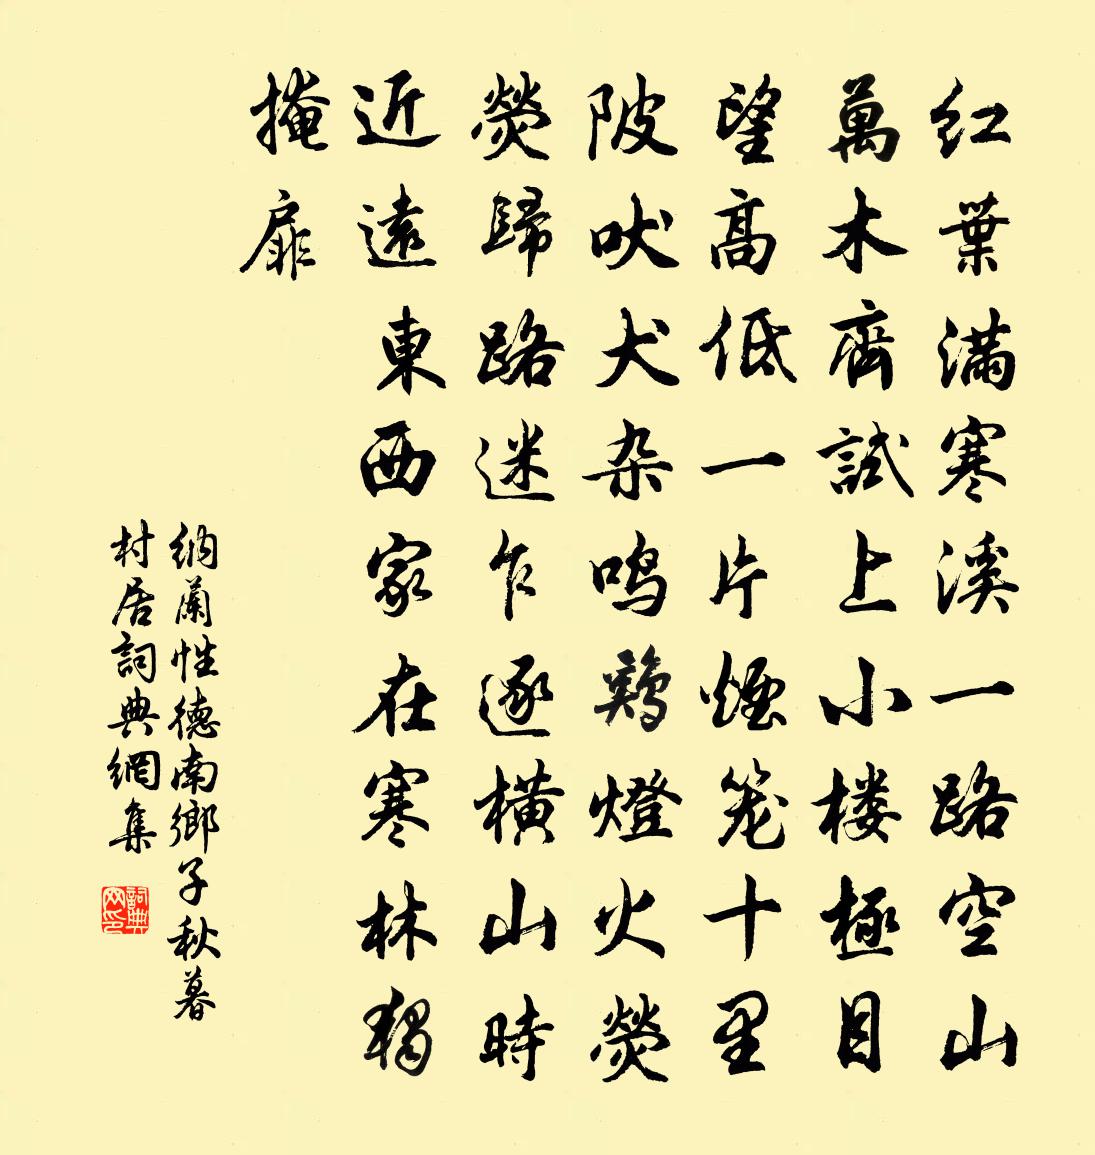 红葉满寒溪一路空山
萬木齊試上小楼極目
望高低一片煙笼十里
陂吠犬杂鸣鷄燈火熒
熒歸路迷乍逐横山時
近遠東西家在寒林獨
掩扉
納蘭性德南鄉子秋暮
村居詞典網集
詞典
网印